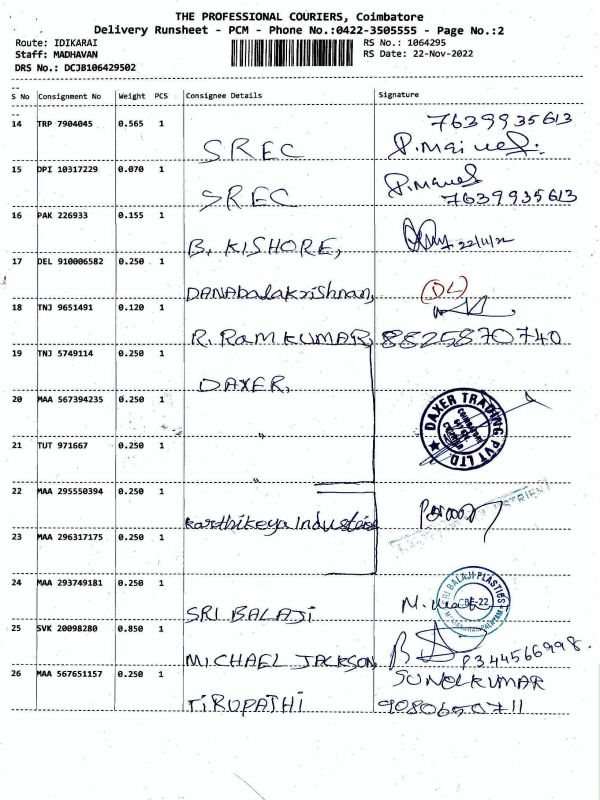 THE PROFESSIONAL COURIERS, Coimbatore
Delivery Runsheet - PCM - Phone No.:0422-3505555 - Page No.:2
Route: IDIKARAI RS No.: 1064295
Staff: MADHAVAN RS Date: 22-Nov-2022
DRS No.: DCJB106429502
S No Consignment No Weight PCS Consignee Details Signature
14 TRP 7904045 0.565 1 SREC 7639935613
15 DPI 10317229 0.070 1 SREC 7639935613
16 PAK 226933 0.155 1 B. KISHORE, 22/11/22
17 DEL 910006582 0.250 1 DANAbalakrishnan, (DL)
18 TNJ 9651491 0.120 1 R. RamKUMAR, 8825870740
19 TNJ 5749114 0.250 1 DAXER,
20 MAA 567394235 0.250 1 " DAXER TRADING PVT LTD
21 TUT 971667 0.250 1 "
22 MAA 295550394 0.250 1 Karthikeya Industries
23 MAA 296317175 0.250 1
24 MAA 293749181 0.250 1 SRI BALAJI SRI BALAJI PLASTIES
25 SVK 20098280 0.850 1 MICHAEL JACKSON,
26 MAA 567651157 0.250 1 TIRUPATHI SUNOLKUMAR
9080650711